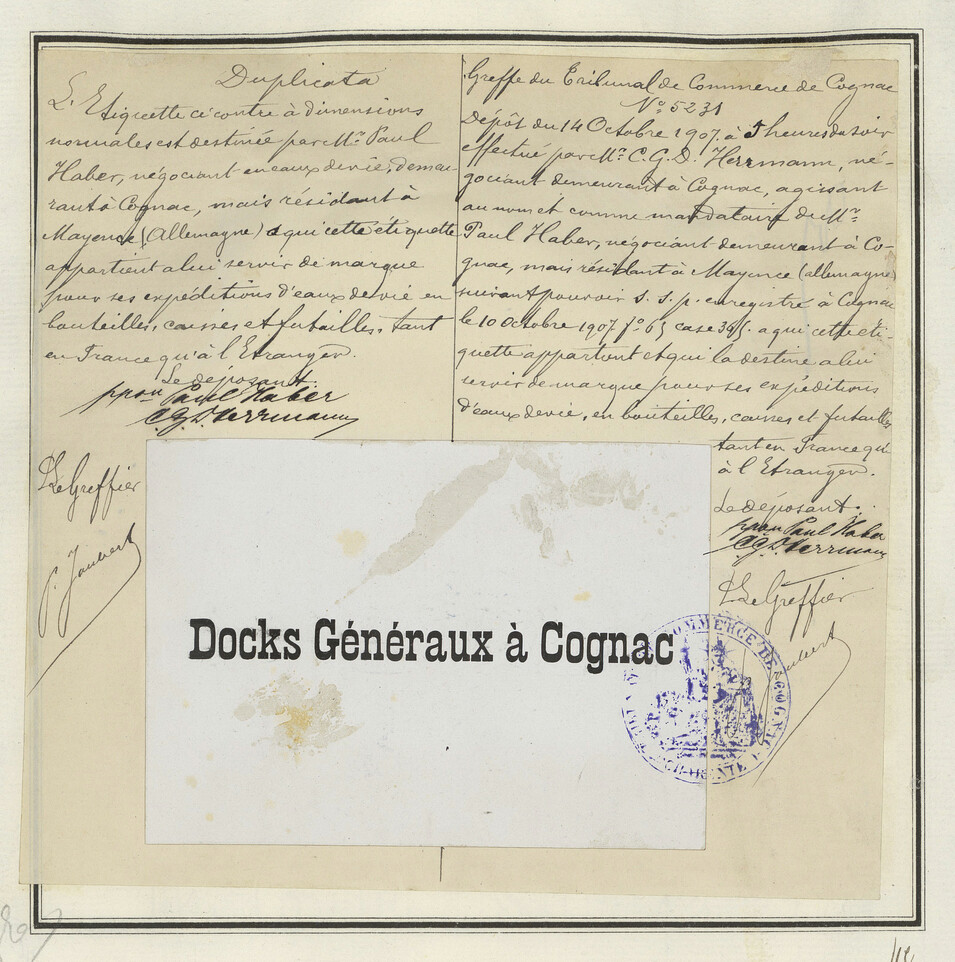 Duplicata
L'Etiquette ci contre à dimensions
normales est destinée par Mr. Paul
Haber, négociant en eaux de vie, demeu-
rant à Cognac, mais résidant à
Mayence (Allemagne) à qui cette étiquette
appartient à lui servir de marque
pour ses expéditions d'eaux de vie en
bouteilles, caisses et futailles, tant
en France qu'à l'Etranger.
Le déposant.
ppon Paul Haber
C.G.D. Herrmann
Le Greffier
P. Jaubert
Greffe du Tribunal de Commerce de Cognac
No 5231
Dépôt du 14 Octobre 1907 à 5 heures du soir
effectué par Mr. C. G. D. Herrmann, né-
gociant demeurant à Cognac, agissant
au nom et comme mandataire du Mr.
Paul Haber, négociant demeurant à Co-
gnac, mais résidant à Mayence (allemagne)
suivant pouvoir s. s. p. enregistré à Cognac
le 10 Octobre 1907 fo 65 case 395. à qui cette éti-
quette appartient et qui la destine à lui
servir de marque pour ses expéditions
d'eaux de vie, en bouteilles, caisses et futailles
tant en France qu'
à l'Etranger.
Le déposant.
ppon Paul Haber
C.G.D. Herrmann
Le Greffier
Jaubert
Docks Généraux à Cognac
COMMERCE DE COGNAC